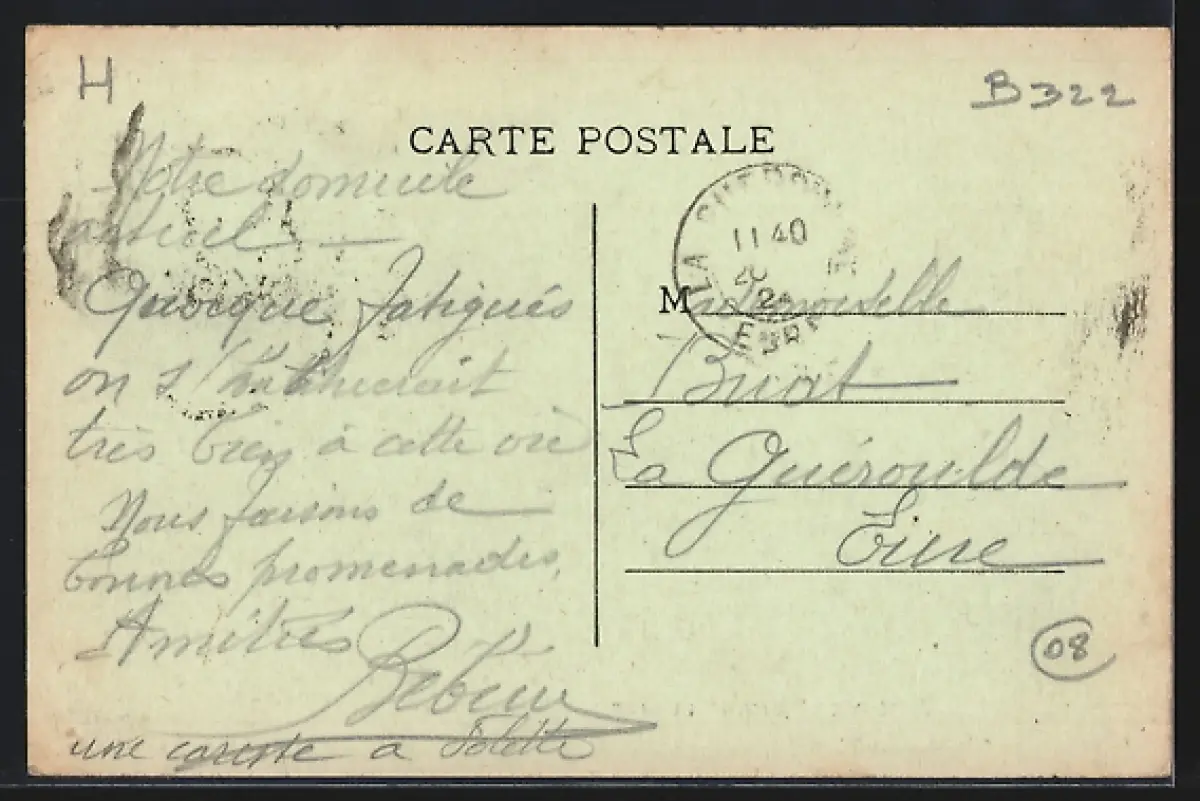 H
B322
CARTE POSTALE
Notre domicile
actuel —
Quoique fatigués
on s'habituerait
très bien à cette vie
Nous faisons de
bonnes promenades,
Amitiés
une caresse à Folette
11 40
EURE
Mademoiselle
Buat
La Guéroulde
Eure
08